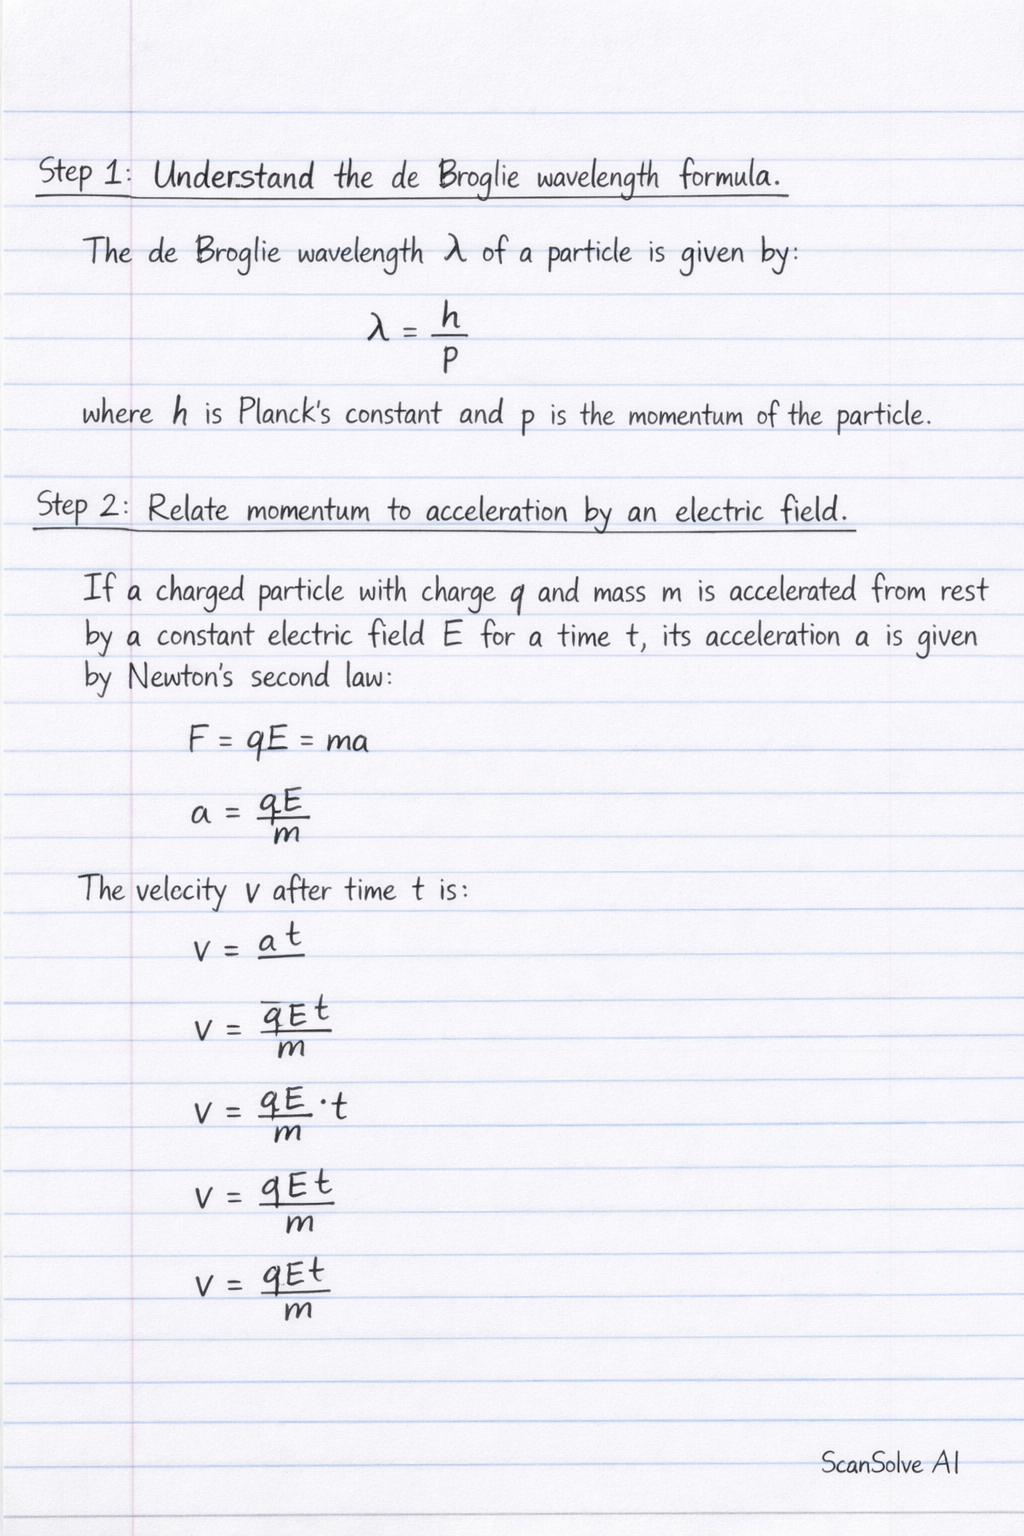 Step 1: Understand the de Broglie wavelength formula.
The de Broglie wavelength λ of a particle is given by:
λ = h/p
where h is Planck's constant and p is the momentum of the particle.
Step 2: Relate momentum to acceleration by an electric field.
If a charged particle with charge q and mass m is accelerated from rest
by a constant electric field E for a time t, its acceleration a is given
by Newton's second law:
F = qE = ma
a = qE/m
The velccity v after time t is:
v = at
v = qEt/m
v = qE/m · t
v = qEt/m
v = qEt/m
ScanSolve AI